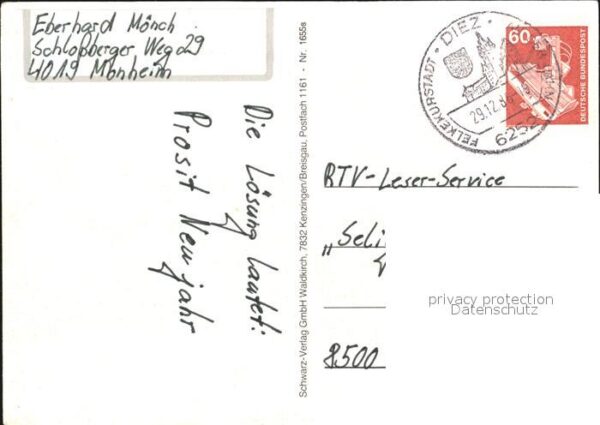 Eberhard Mönch
Schloßberger Weg 29
4019 Monheim
Die Lösung lautet:
Prosit Neujahr
Schwarz-Verlag GmbH Waldkirch, 7832 Kenzingen/Breisgau, Postfach 1161 - Nr. 1655s
FELKEKURSTADT · DIEZ ·
29.12.86
6252
60
DEUTSCHE BUNDESPOST
RTV-Leser-Service
8500
privacy protection
Datenschutz